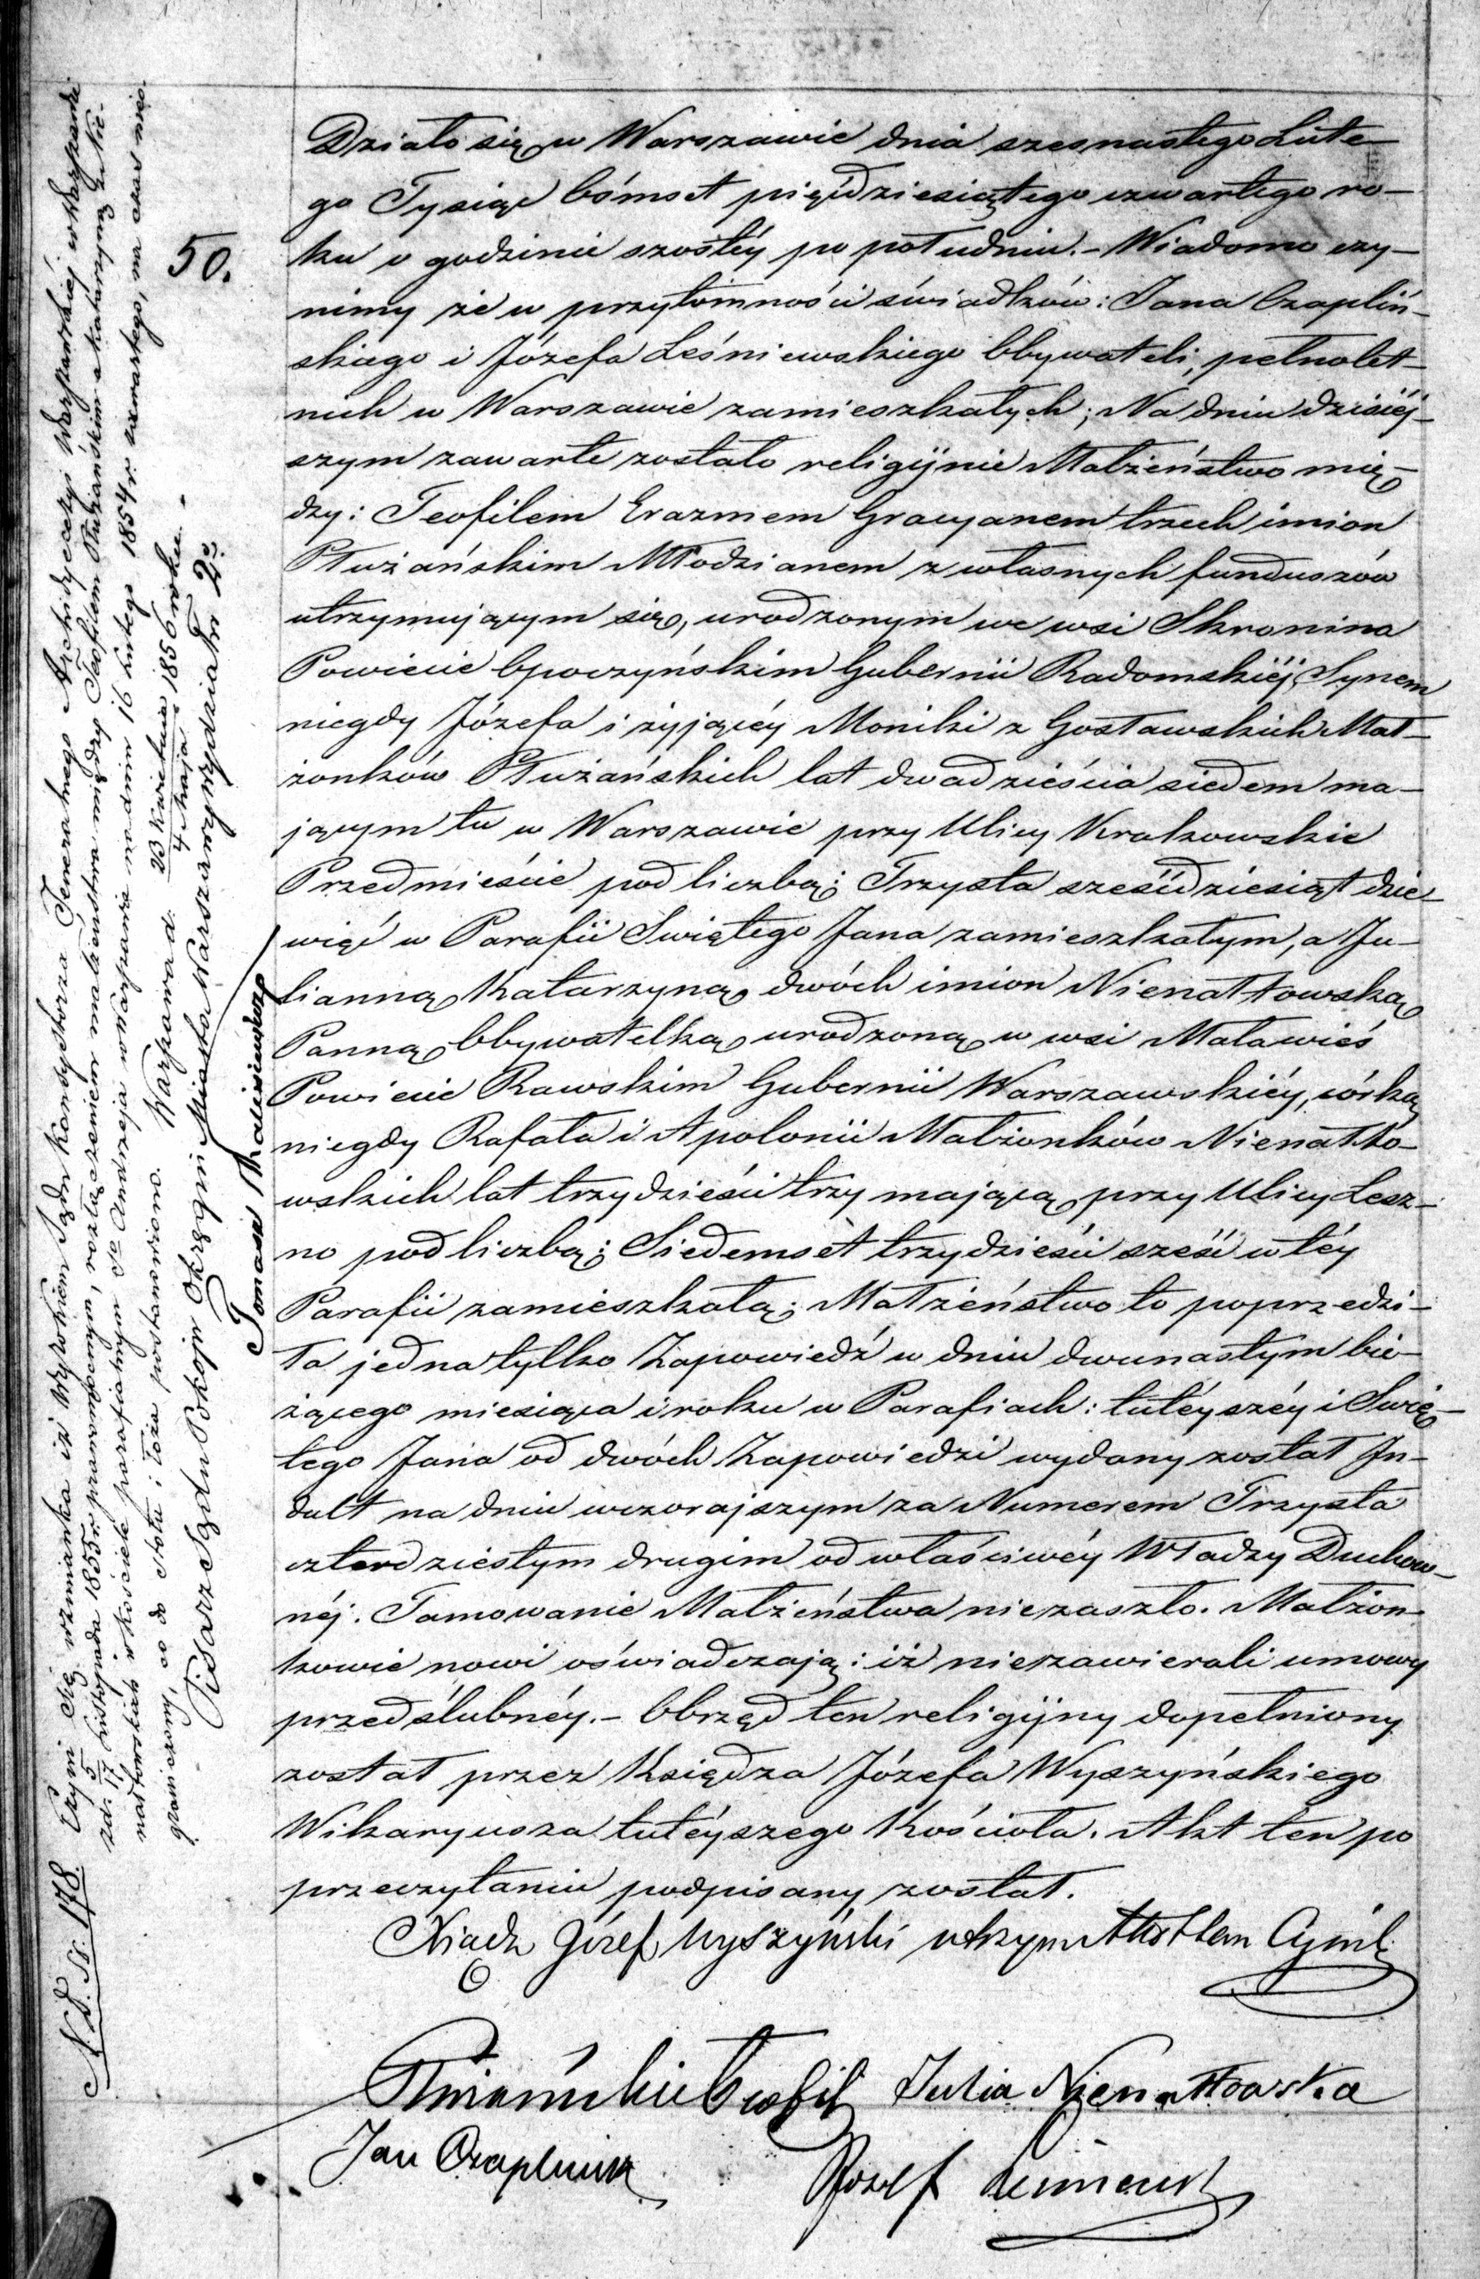 50.
Działo się w Warszawie dnia szesnastego Lute-
go Tysiąc Ośmset pięćdziesiątego czwartego ro-
ku o godzinie szóstéy po południu. – Wiadomo czy-
nimy że w przytomności świadków: Jana Czapliń-
skiego i Józefa Leśniewskiego Obywateli, pełnolet-
nich w Warszawie zamieszkałych; Na dniu dzisiéj-
szym zawarte zostało religijnie Małżeństwo mię-
dzy: Teofilem Erazmem Gracyanem trzech imion
Płużańskim Młodzianem z własnych funduszów
utrzymującym się, urodzonym we wsi Skronina
Powiecie Opoczyńskim Gubernii Radomskiéj, Synem
niegdy Józefa i żyjącéy Moniki z Gosławskich Mał-
żonków Płużańskich lat dwadzieścia siedem ma-
jącym tu w Warszawie przy Ulicy Krakowskie
Przedmieście pod liczbą: Trzysta sześćdziesiąt dzie-
więć w Parafii Swiętego Jana zamieszkałym, a Ju-
lianną Katarzyną dwóch imion Nienałtowską
Panną Obywatelką urodzoną w wsi Mławieś
Powiecie Rawskim Gubernii Warszawskiéy, córką
niegdy Rafała i Apolonii Małżonków Nienałto-
wskich lat trzydzieści trzy mającą, przy Ulicy Lesz-
no pod liczbą: Siedemset trzydzieści sześć w téy
Parafii zamieszkałą; Małżeństwo to poprzedzi-
ła jedna tylko Zapowiedź w dniu dwunastym bie-
żącego miesiąca i roku w Parafiach: tutéyszéy i Swię-
tego Jana od dwóch Zapowiedzi wydany został In-
dult na dniu wczorajszym za Numerem Trzysta
czterdziestym drugim od właściwéy Władzy Duchow-
néj. Tamowanie Małżeństwa niezaszło. Małżon-
kowie nowi oświadczają: iż niezawierali umowy
przedślubnéy. – Obrzęd ten religijny dopełniony
został przez Księdza Józefa Wyszyńskiego
Wikaryusza tutéyszego Kościoła. Akt ten po
przeczytaniu podpisany został.
Xiądz Józef Wyszyński utrzym Akta Stanu Cywil
Płużański Teofil Julia Nienałtowska
Jan Czapliński Józef Leśniewski
N. D. St. 178. Czyni się wzmianka iż Wyrokiem Sądu Konsystorza Jeneralnego Archidyecezyi Warszawskiéj w Warszawie
zd. 5/17 Listopada 1855 r. prawomocnym, rozłączeniem małżeństwa między Teofilem Płużańskim a Katarzyną z Nie-
nałtowskich w kościele parafialnym Sgo Andrzeja w Warszawie na dniu 16 Lutego 1854 r. zawartego, na czas nieo-
graniczony, co do stołu i łoża postanowiono. Warszawa d. 23 Kwietnia / 4 Maja 1856 roku. -
Pisarz Sądu Pokoju Okręgu i Miasta Warszawy Wydziału 2go
Tomasz